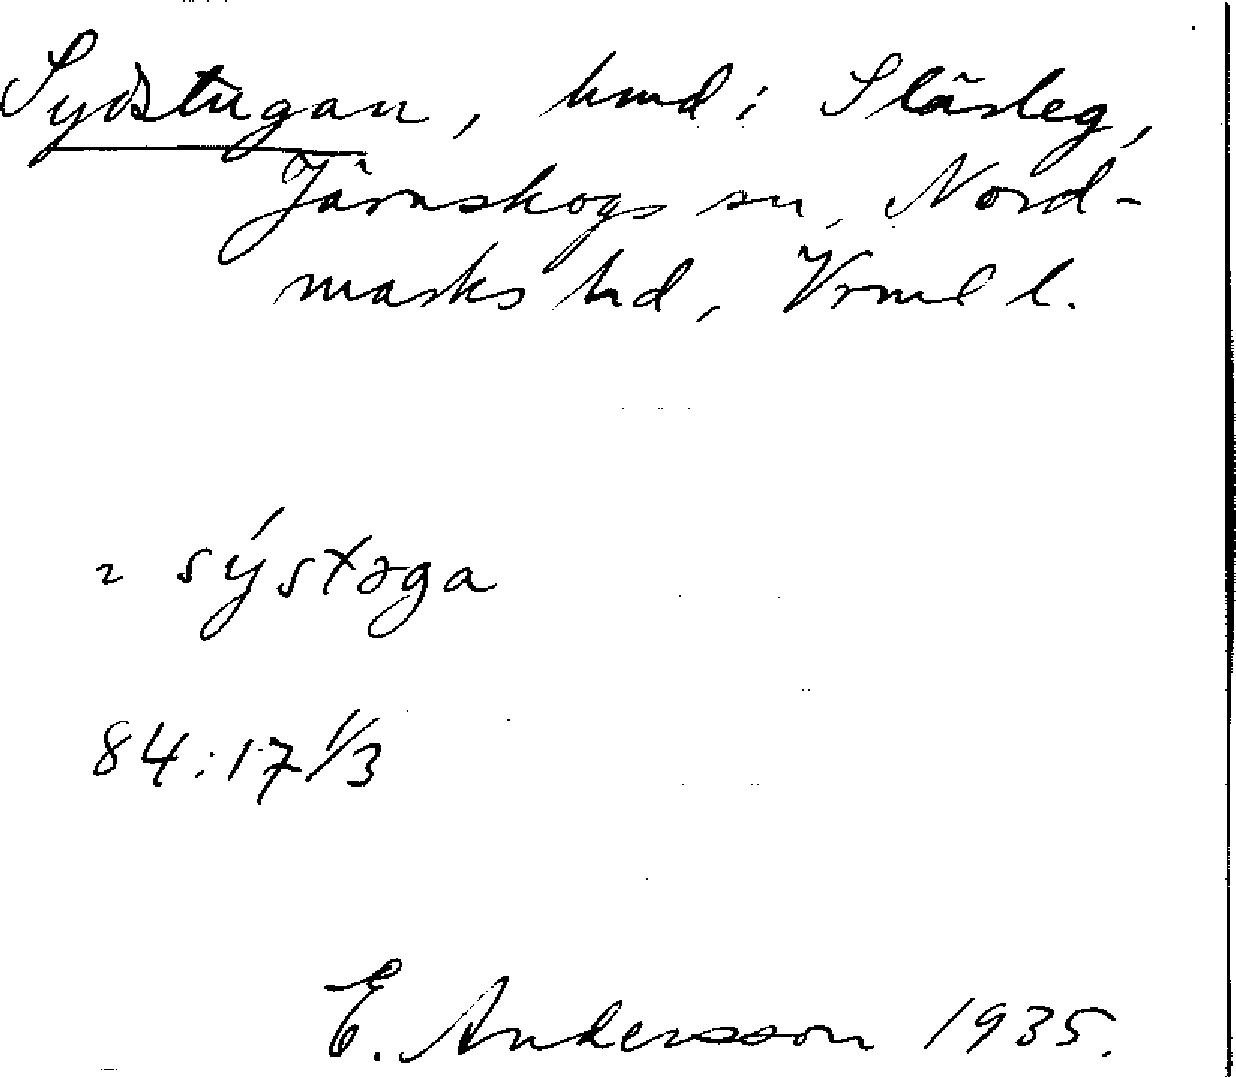 Sydstugan, hmd i Slärleg,
Järnskogs sn, Nord-
marks hd, Vrml l.
= sýstəga
84:17 1/3
E. Andersson 1935.